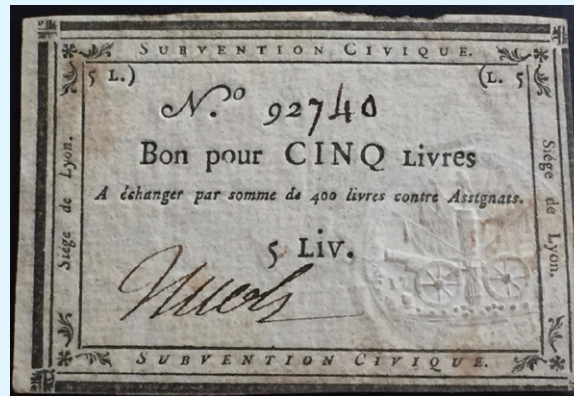 SUBVENTION CIVIQUE.
5 L.) (L. 5
N.º 92740
Bon pour CINQ LIVRES
A échanger par somme de 400 livres contre Assignats.
5 LIV.
Siége de Lyon.
Siége de Lyon.
SUBVENTION CIVIQUE.